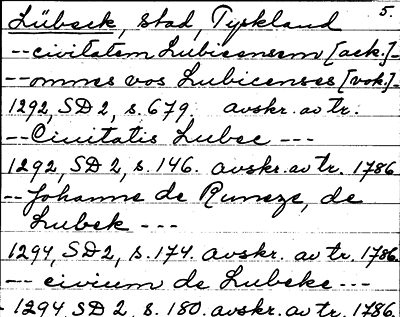 5.
Lübeck, stad, Tyskland
--civitatem Lubicensem [ack.]-
--omnes vos Lubicenses [vok.]-
1292, SD 2, s. 679. avskr. av tr.
--Ciuitatis Lubec ---
1292, SD 2, s. 146. avskr. av tr. 1786
--Johanne de Rumeze, de
Lubek ---
1294, SD 2, s. 174. avskr. av tr. 1786.
--- civium de Lubeke ---
- 1294, SD 2, s. 180. avskr. av tr. 1786.